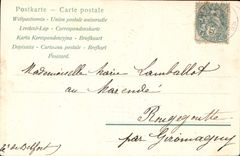 Postkarte - Carte postale
Weltpostverein - Union postale universelle
Levelező-Lap - Correspondenzkarte
Karta Korespondencyjna - Briefkaart
Dopisnice - Cartolina postale - Brefkort
Postcard
Mademoiselle Marie Lamballot
au
Rougegoutte
par Giromagny
Tre de Belfort